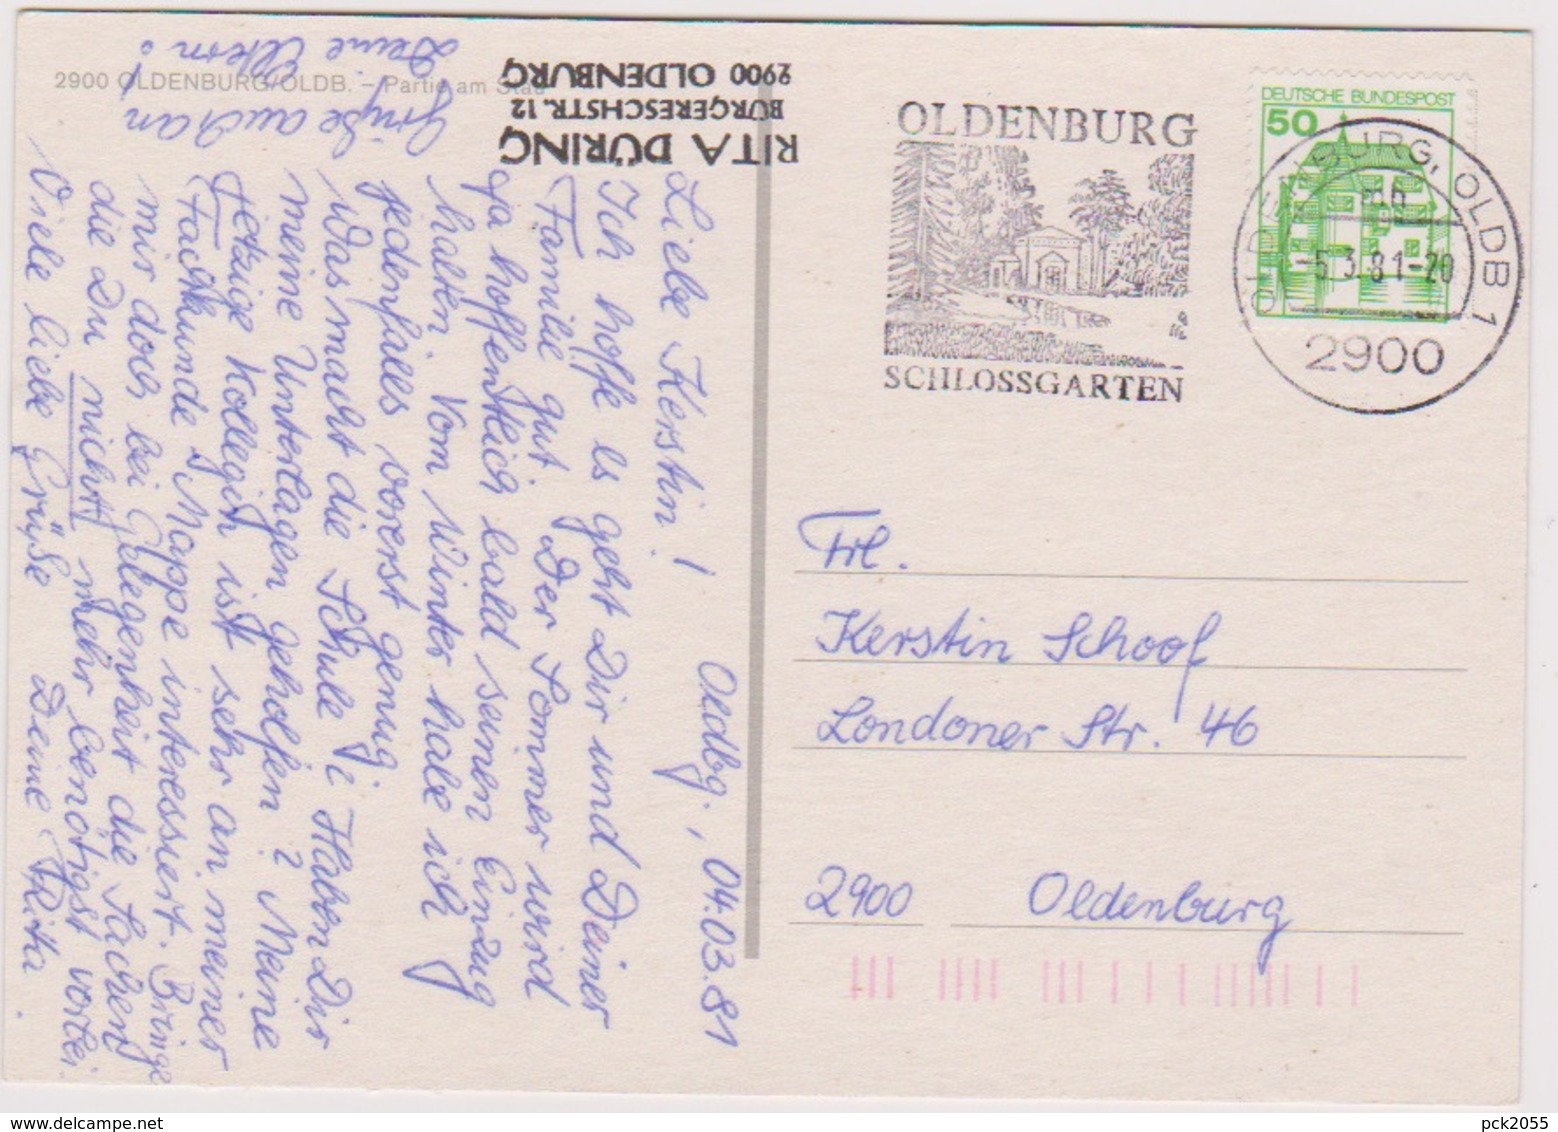 2900 OLDENBURG/OLDB. – Partie am Stau
RITA DÜRING
BÜRGERESCHSTR. 12
2900 OLDENBURG
Oldbg., 04.03.81
Liebe Kerstin!
Ich hoffe es geht Dir und Deiner
Familie gut. Der Sommer wird
ja hoffentlich bald seinen Einzug
halten. Vom Winter habe ich
jedenfalls vorerst genug.
Was macht die Schule? Haben Dir
meine Unterlagen geholfen? Meine
jetzige Kollegin ist sehr an meiner
Fachkunde Mappe interessiert. Bringe
mir doch bei Gelegenheit die Sachen
die Du nicht mehr benötigst vorbei.
Viele liebe Grüße Deine Rita.
Grüße auch an
Deine Eltern!
OLDENBURG
SCHLOSSGARTEN
DEUTSCHE BUNDESPOST
50
OLDENBURG, OLDB 1
-5.3.81-20
2900
Frl.
Kerstin Schoof
Londoner Str. 46
2900 Oldenburg
pck2055